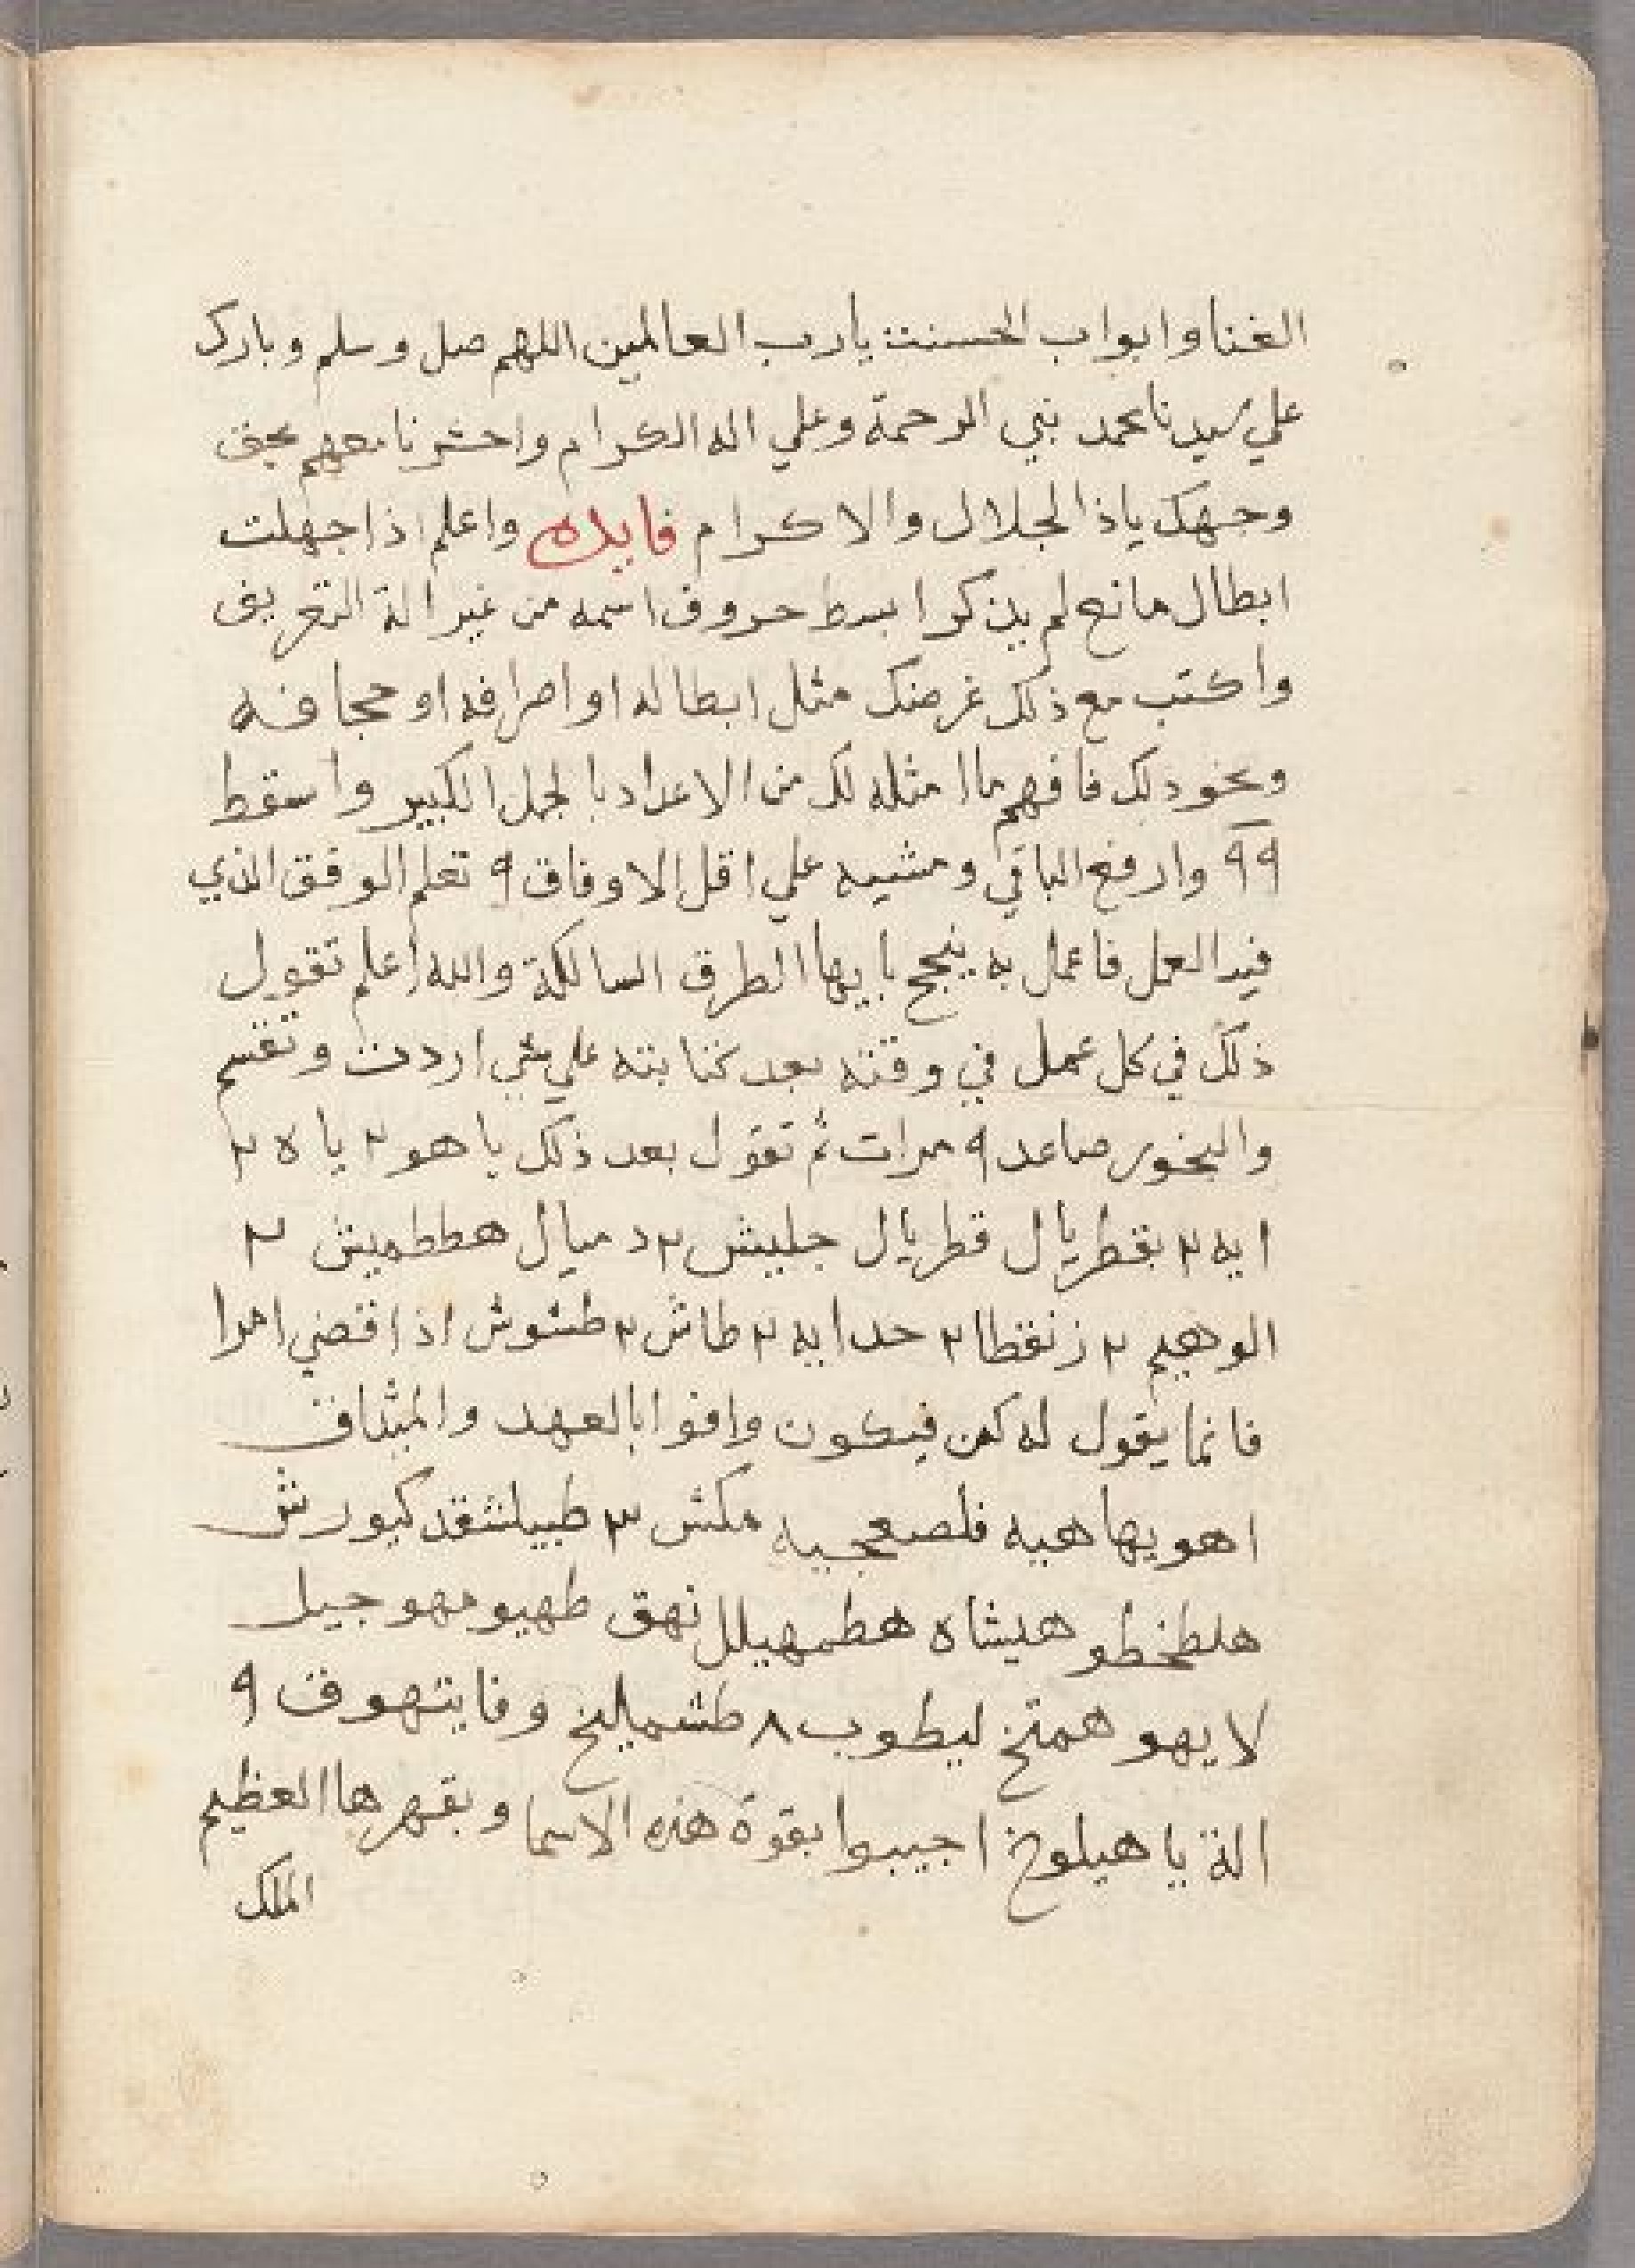 الغنا وابواب الحسنت يارب العالمين اللهم صل وسلم وبارك
علي سيدنا محمد نبي الرحمة وعلي اله الكرام واحشرنا معهم بحق
وجهك ياذا الجلال والاكرام فايده واعلم اذا جهلت
ابطال مانع لم يذكر ابسط حروف اسمه من غير الة التعريف
واكتب مع ذلك غرضك مثل ابطاله او اصرافه او حجافه
ونحو ذلك فافهم ما امثله لك من الاعداد بالجمل الكبير واسقط
٩٩ وارفع الباقي ومشيه علي اقل الاوفاق ٩ تعلم الوفق الذي
فيه العمل فاعمل به ينجح بايها الطرق السالكة والله اعلم تقول
ذلك في كل عمل في وقته بعد كتابته علي شي اردت وتقسم
والبخور صاعد ٩ مرات ثم تقول بعد ذلك يا هو ٢ يا ه ٢
ايه ٢ بقطريال قطريال جليش ٢ دميال هططميش ٢
الوهيم ٢ زنقطا ٢ حدايه ٢ طاش ٢ طشوش اذا قضي امرا
فانما يقول له كن فيكون وافوا بالعهد والميثاق
اهويها هيه فلصعجيه مكش ٣ طبيلشقد كيورش
هلطخطو هيشاه هطمهيلل نهق طهيومهوجيل
لايهو همتخ ليطوب ٨ طشمايلخ وفايتهوف ٩
الة يا هيلوخ اجيبوا بقوة هذه الاسما وبقهرها العظيم
الملك